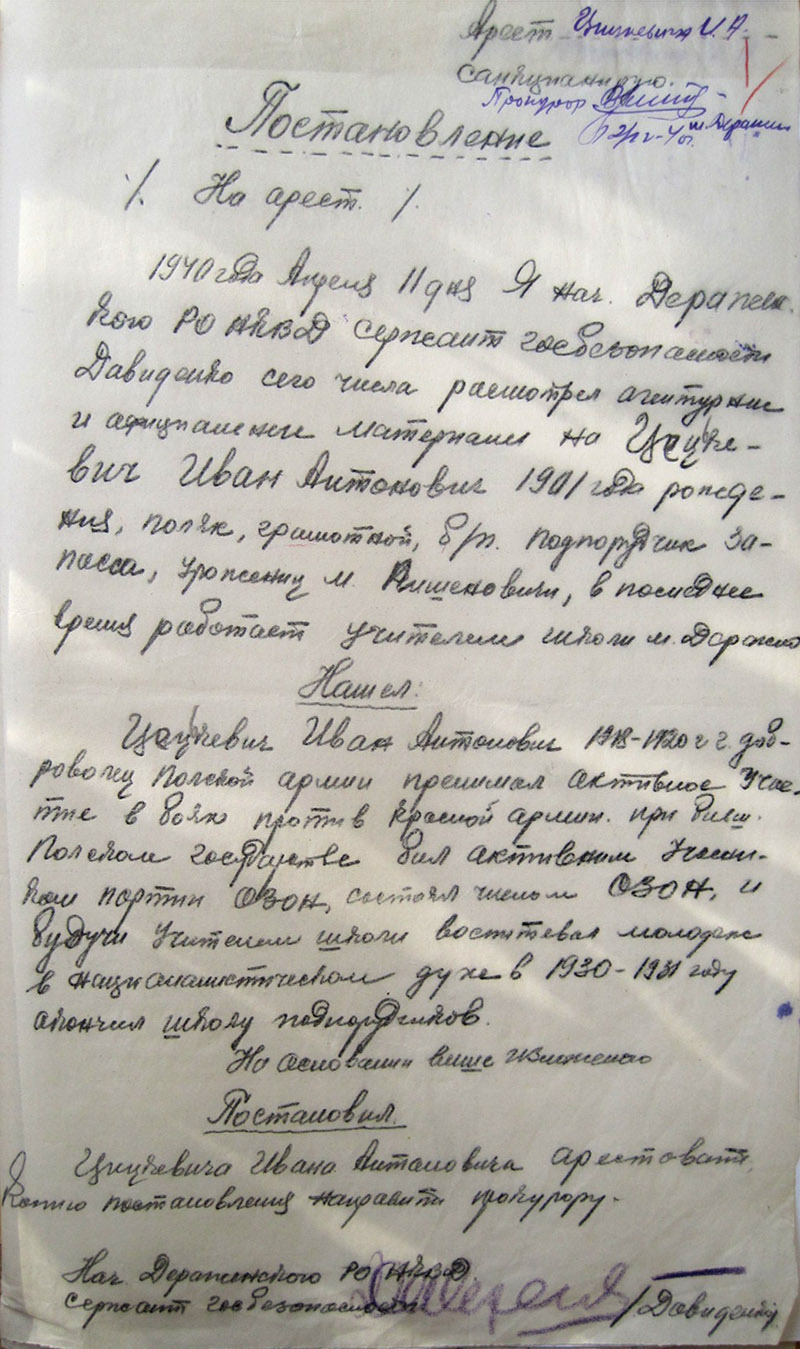 Арест Цицкевича И. А.
Санкционирую.
Прокурор
Постановление
/. На арест. /.
1940 года Апреля 11 дня Я нач. Деражен.
кого РО НКВД Сержант госбезопасности
Давиденко сего числа расмотрел агентурние
и официальние материали на Цецке-
вич Иван Антонович 1901 года рожде-
ния, поляк, грамотной, б/п. подпорудчик за-
пасса, уроженец м. Вишеновичи, в последнее
время работает учителем школи м. Деражно
Нашел:
Цецкевич Иван Антонович 1918-1920 г г. доб-
роволец Полской армии пренимал активное учас-
тие в боях против Красной армии. при бивш.
Полском государстве бил активним участни-
ком партии ОЗОН, состоял членом ОЗОН, и
будучи учителем школи воспитевал молодеж
в националистическом духе в 1930-1931 году
окончил школу подпорудчиков.
На основании више изложеного
Постановил.
Цицкевича Ивана Антоновича арестовать
Копию постановления направить прокурору.
Нач. Дераженского РО НКВД
сержант госбезопасности /Давиденко